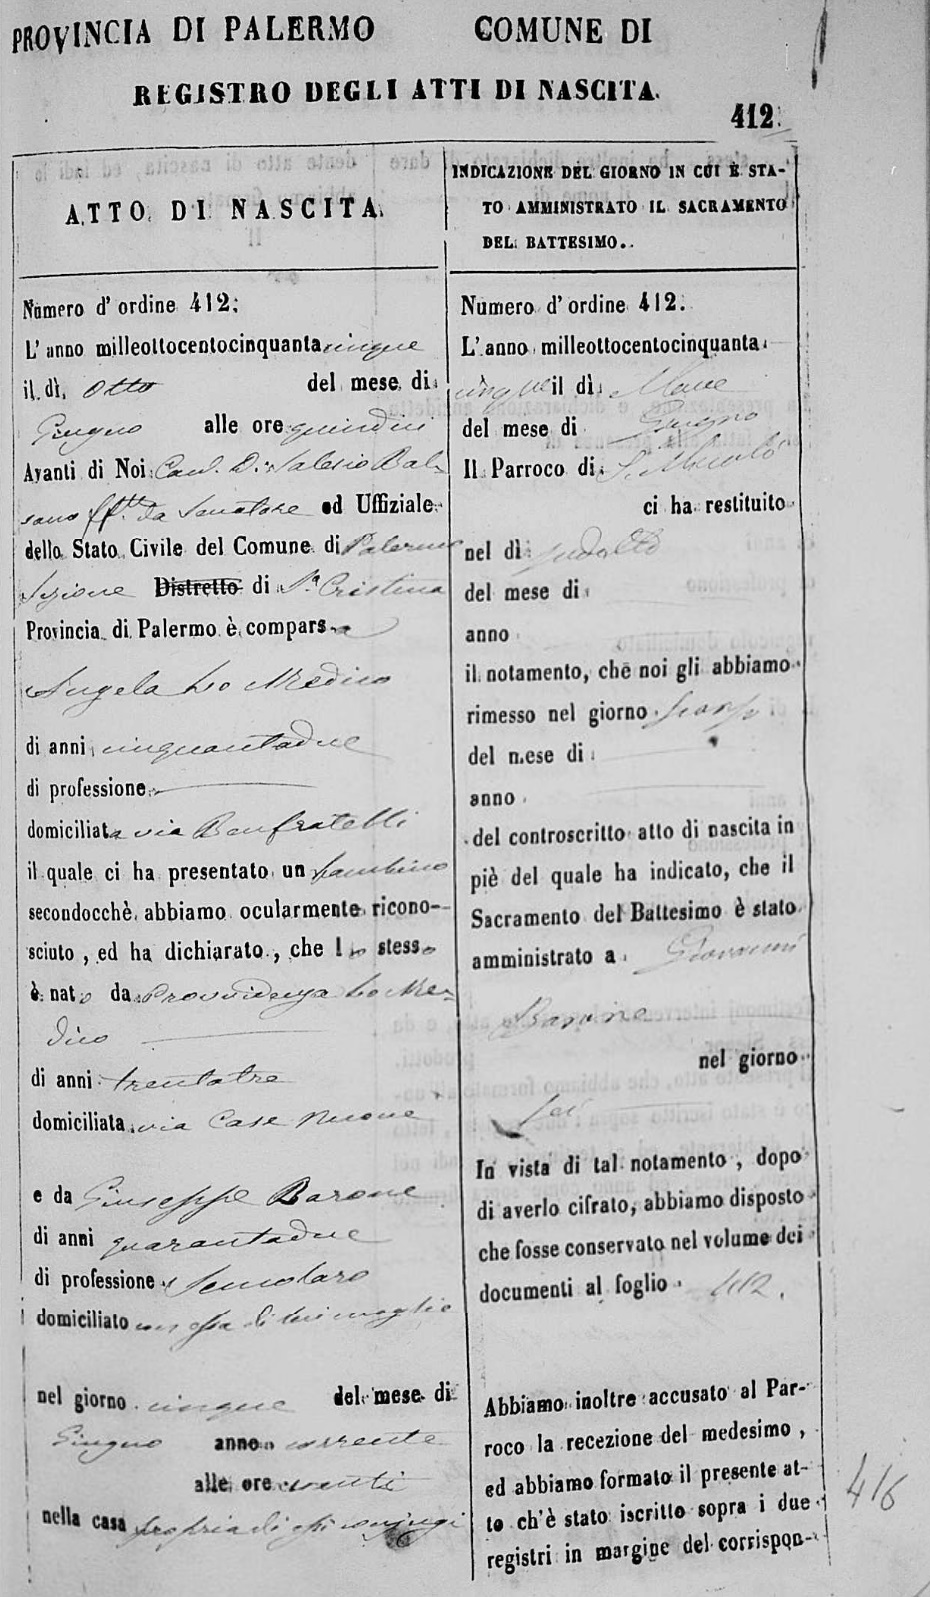 PROVINCIA DI PALERMO COMUNE DI
REGISTRO DEGLI ATTI DI NASCITA.
412.
ATTO DI NASCITA.
Numero d' ordine 412.
L' anno milleottocentocinquantacinque
il dì Otto del mese di
Giugno alle ore quindici
Avanti di Noi Cav. D. Salesio Bal-
sano ff. da Senatore ed Uffiziale
dello Stato Civile del Comune di Palermo
Sezione Distretto di Sa Cristina
Provincia di Palermo è comparsa
Angela Lo Medico
di anni cinquantadue
di professione
domiciliata via Benfratelli
il quale ci ha presentato un bambino
secondocchè abbiamo ocularmente ricono-
sciuto, ed ha dichiarato, che lo stesso
è nato da Provvidenza Lo Me-
dico
di anni trentatre
domiciliata via Case Nuove
e da Giuseppe Barone
di anni quarantadue
di professione
domiciliato con essa di lui moglie
nel giorno cinque del mese di
Giugno anno corrente
alle ore venti
nella casa propria di essi coniugi
INDICAZIONE DEL GIORNO IN CUI È STA-
TO AMMINISTRATO IL SACRAMENTO
DEL BATTESIMO.
Numero d' ordine 412.
L' anno milleottocentocinquanta
cinque il dì Nove
del mese di Giugno
Il Parroco di S. Nicolò
ci ha restituito
nel dì sudetto
del mese di
anno
il notamento, che noi gli abbiamo
rimesso nel giorno scorso
del mese di
anno
del controscritto atto di nascita in
piè del quale ha indicato, che il
Sacramento del Battesimo è stato
amministrato a Giovanni
Barone
nel giorno
sei
In vista di tal notamento, dopo
di averlo cifrato, abbiamo disposto
che fosse conservato nel volume dei
documenti al foglio 412.
Abbiamo inoltre accusato al Par-
roco la recezione del medesimo,
ed abbiamo formato il presente at-
to ch'è stato iscritto sopra i due
registri in margine del corrispon-
416